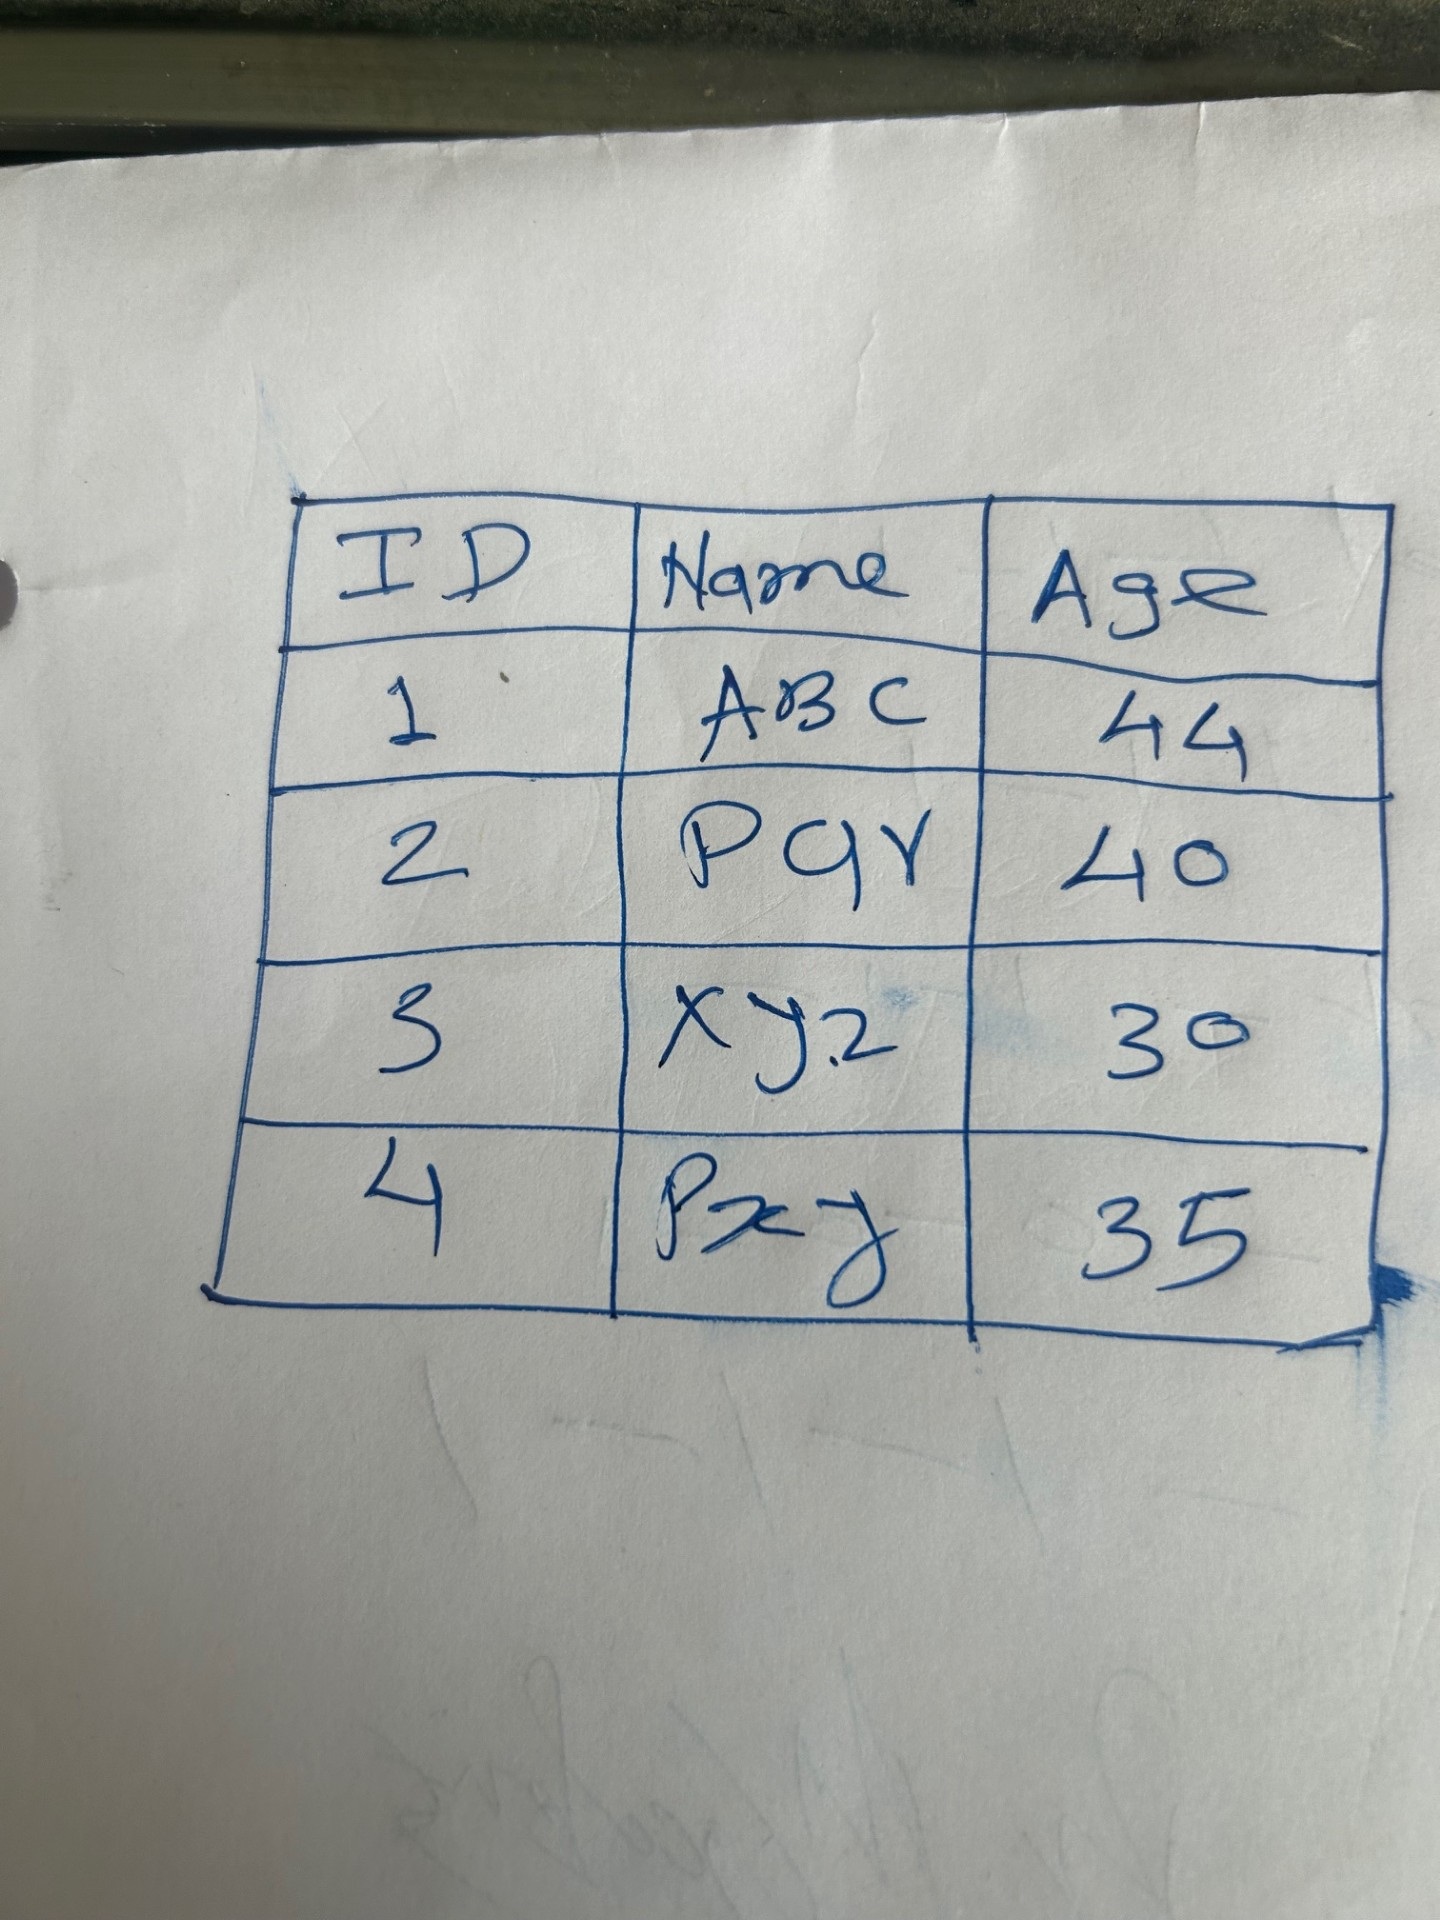 ID Name Age
1 ABC 44
2 Pqr 40
3 Xyz 30
4 Pxy 35